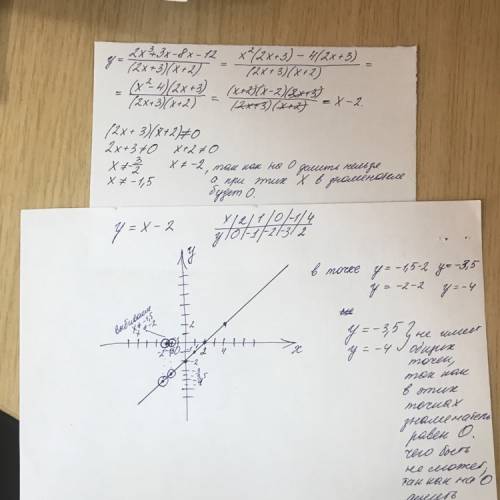 y = 2x³+3x-8x-12 / (2x+3)(x+2) = x²(2x+3) - 4(2x+3) / (2x+3)(x+2) =
= (x²-4)(2x+3) / (2x+3)(x+2) = (x+2)(x-2)(2x+3) / (2x+3)(x+2) = x-2.
(2x+3)(x+2)≠0
2x+3≠0 x+2≠0
x≠-3/2 x≠-2, так как на 0 делить нельзя
x≠-1,5 а при этих х в знаменателе
будет 0.
y = x-2
x | 2 | 1 | 0 | -1 | 4
y | 0 | -1 | -2 | -3 | 2
y
в точке y = -1,5-2 y = -3,5
y = -2-2 y = -4
выбиваем
x ≠ -1,5
x ≠ -2
2
-2
0
2
4
x
y = -3,5 } не имеет
y = -4 общих
точек,
так как
в этих
точках
знаменатель
равен 0.
чего быть
не может,
так как на 0
делить